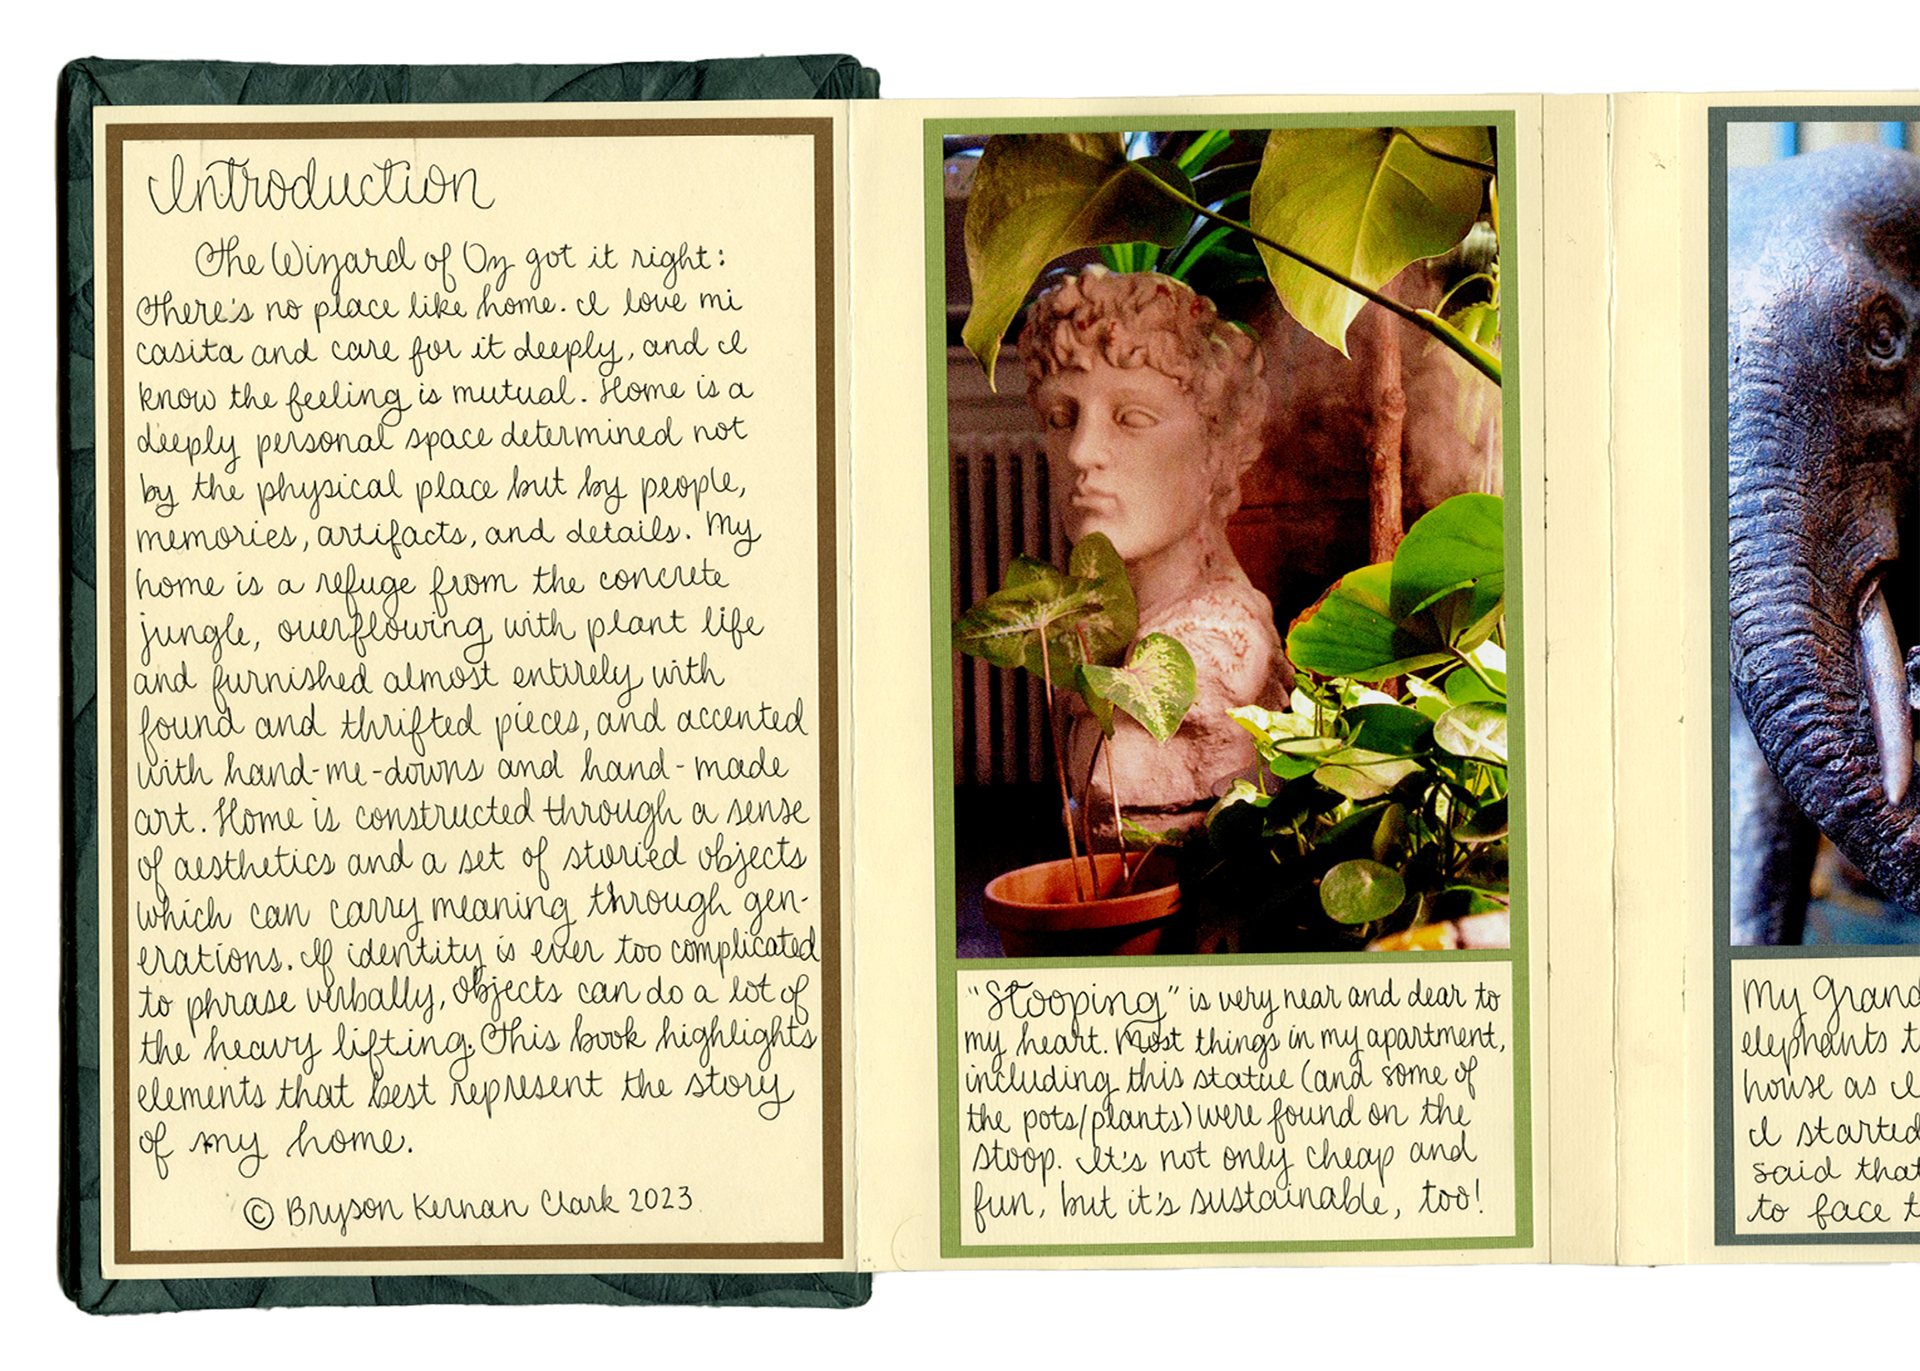 Introduction
The Wizard of Oz got it right:
There's no place like home. I love mi
casita and care for it deeply, and I
know the feeling is mutual. Home is a
deeply personal space determined not
by the physical place but by people,
memories, artifacts, and details. My
home is a refuge from the concrete
jungle, overflowing with plant life
and furnished almost entirely with
found and thrifted pieces, and accented
with hand-me-downs and hand-made
art. Home is constructed through a sense
of aesthetics and a set of storied objects
which can carry meaning through gen-
erations. If identity is ever too complicated
to phrase verbally, objects can do a lot of
the heavy lifting. This book highlights
elements that best represent the story
of my home.
© Bryson Kernan Clark 2023
"Stooping" is very near and dear to
my heart. Most things in my apartment,
including this statue (and some of
the pots/plants) were found on the
stoop. It's not only cheap and
fun, but it's sustainable, too!
My Grand
elephants t
house as I
I started
said that
to face t